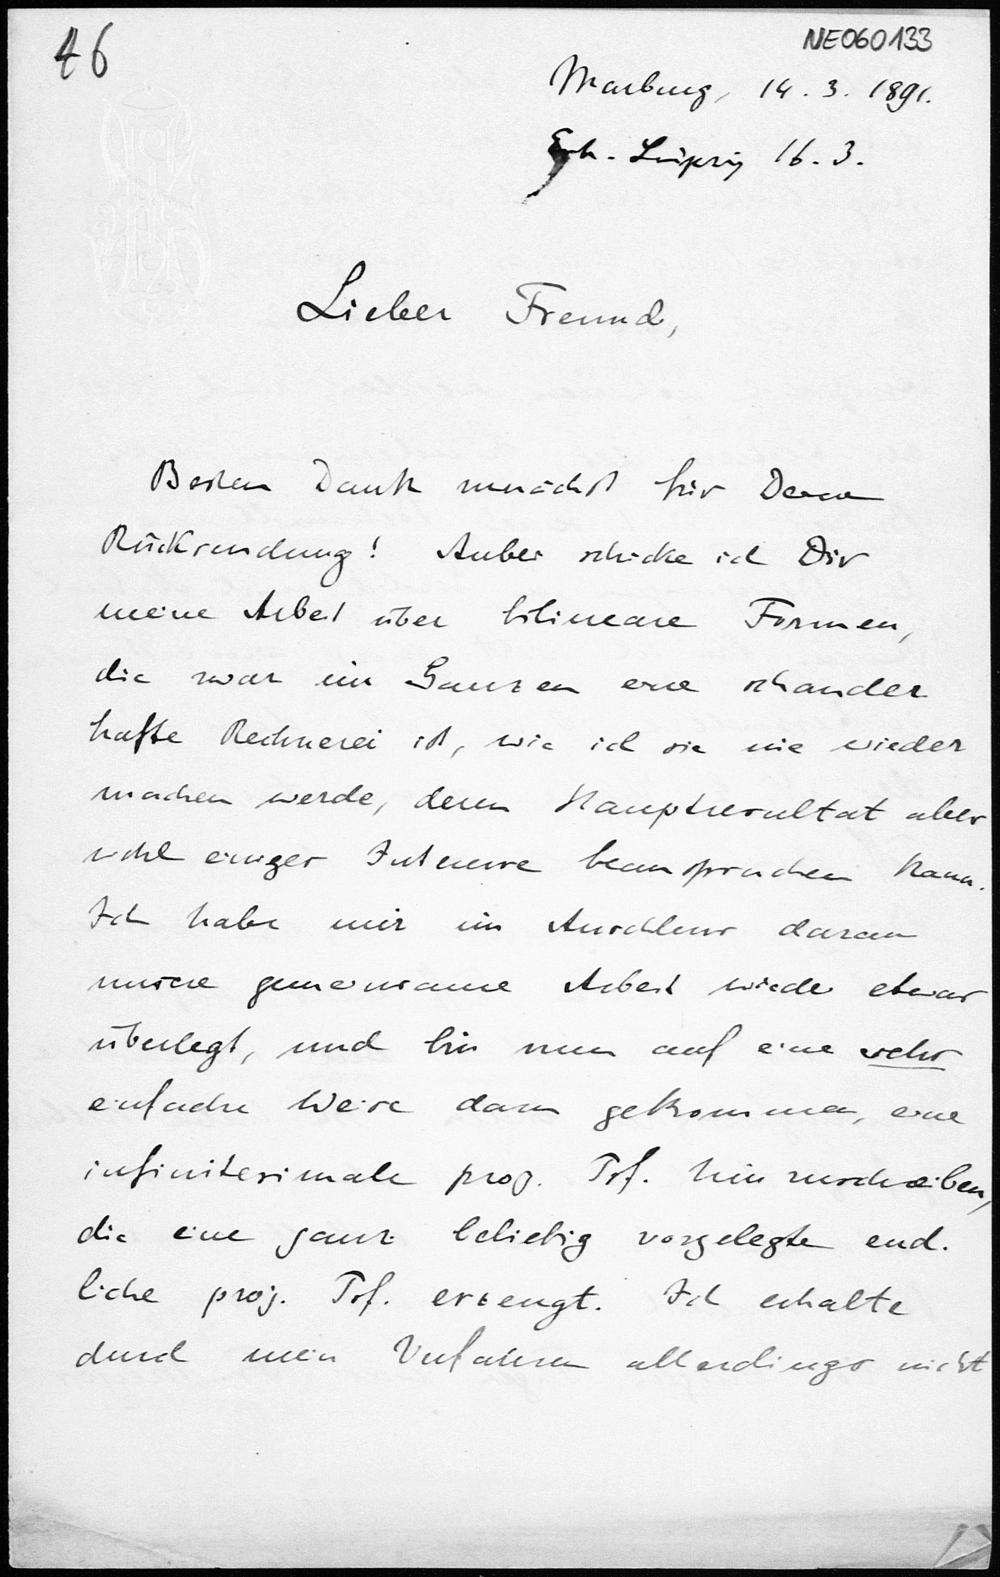 46
NE060133
Marburg, 14. 3. 1891.
Erh. Leipzig 16. 3.
Lieber Freund,
Besten Dank zunächst für Deine
Rücksendung! Anbei schicke ich Dir
meine Arbeit über bilineare Formen,
die zwar im Ganzen eine schauder
hafte Rechnerei ist, wie ich sie nie wieder
machen werde, deren Hauptresultat aber
wohl einiges Interesse beanspruchen kann.
Ich habe mir im Anschluss daran
unsere gemeinsame Arbeit wieder etwas
überlegt, und bin nun auf eine sehr
einfache Weise dazu gekommen, eine
infinitesimale proj. Trf. hinzuschreiben,
die eine ganz beliebig vorgelegte end.
liche proj. Trf. erzeugt. Ich erhalte
durch mein Verfahren allerdings nicht